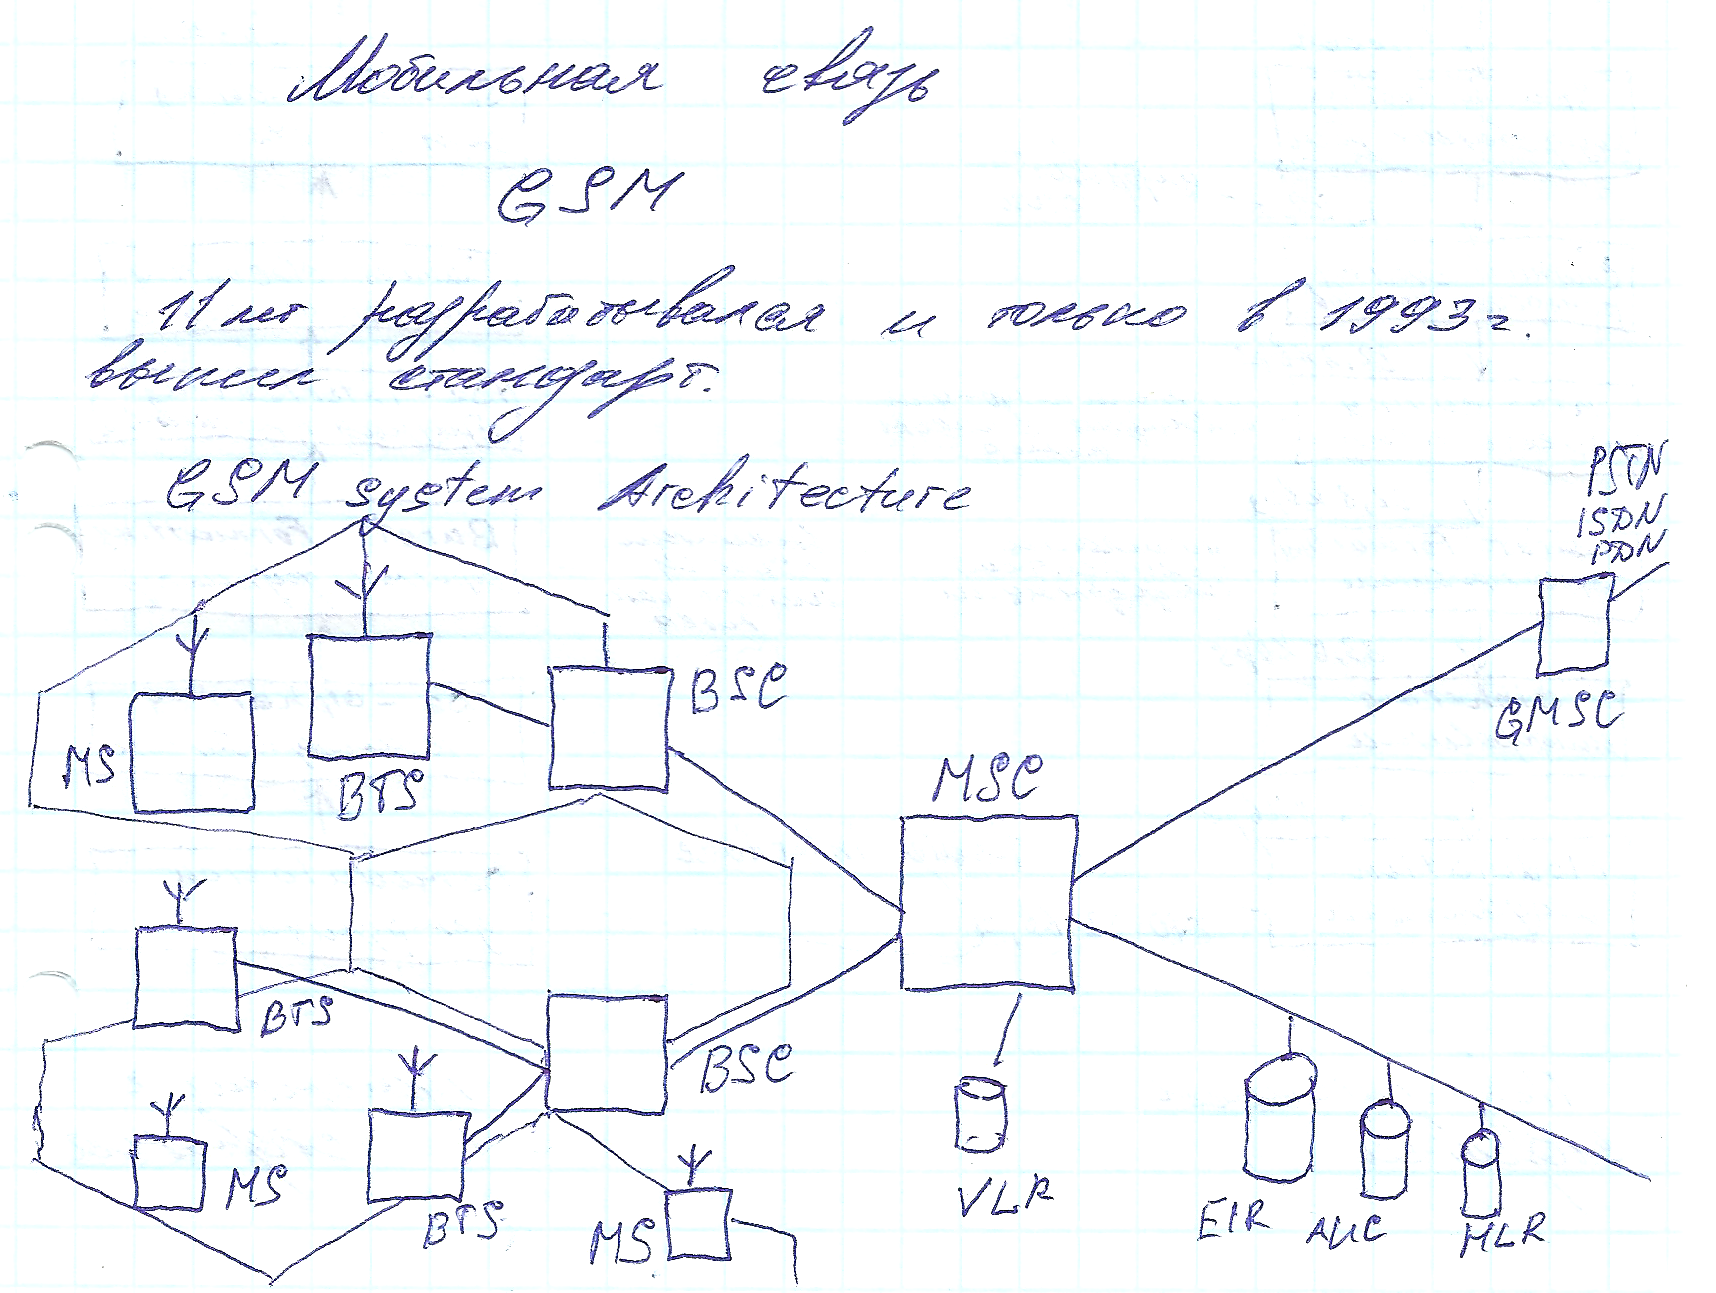 Мобильная связь
GSM
11 лет разрабатывался и только в 1993 г.
вышел стандарт.
GSM system Architecture
PSTN
ISDN
PDN
BSC
GMSC
MS
BTS
MSC
BTS
BSC
MS
BTS
MS
VLR
EIR
AUC
HLR